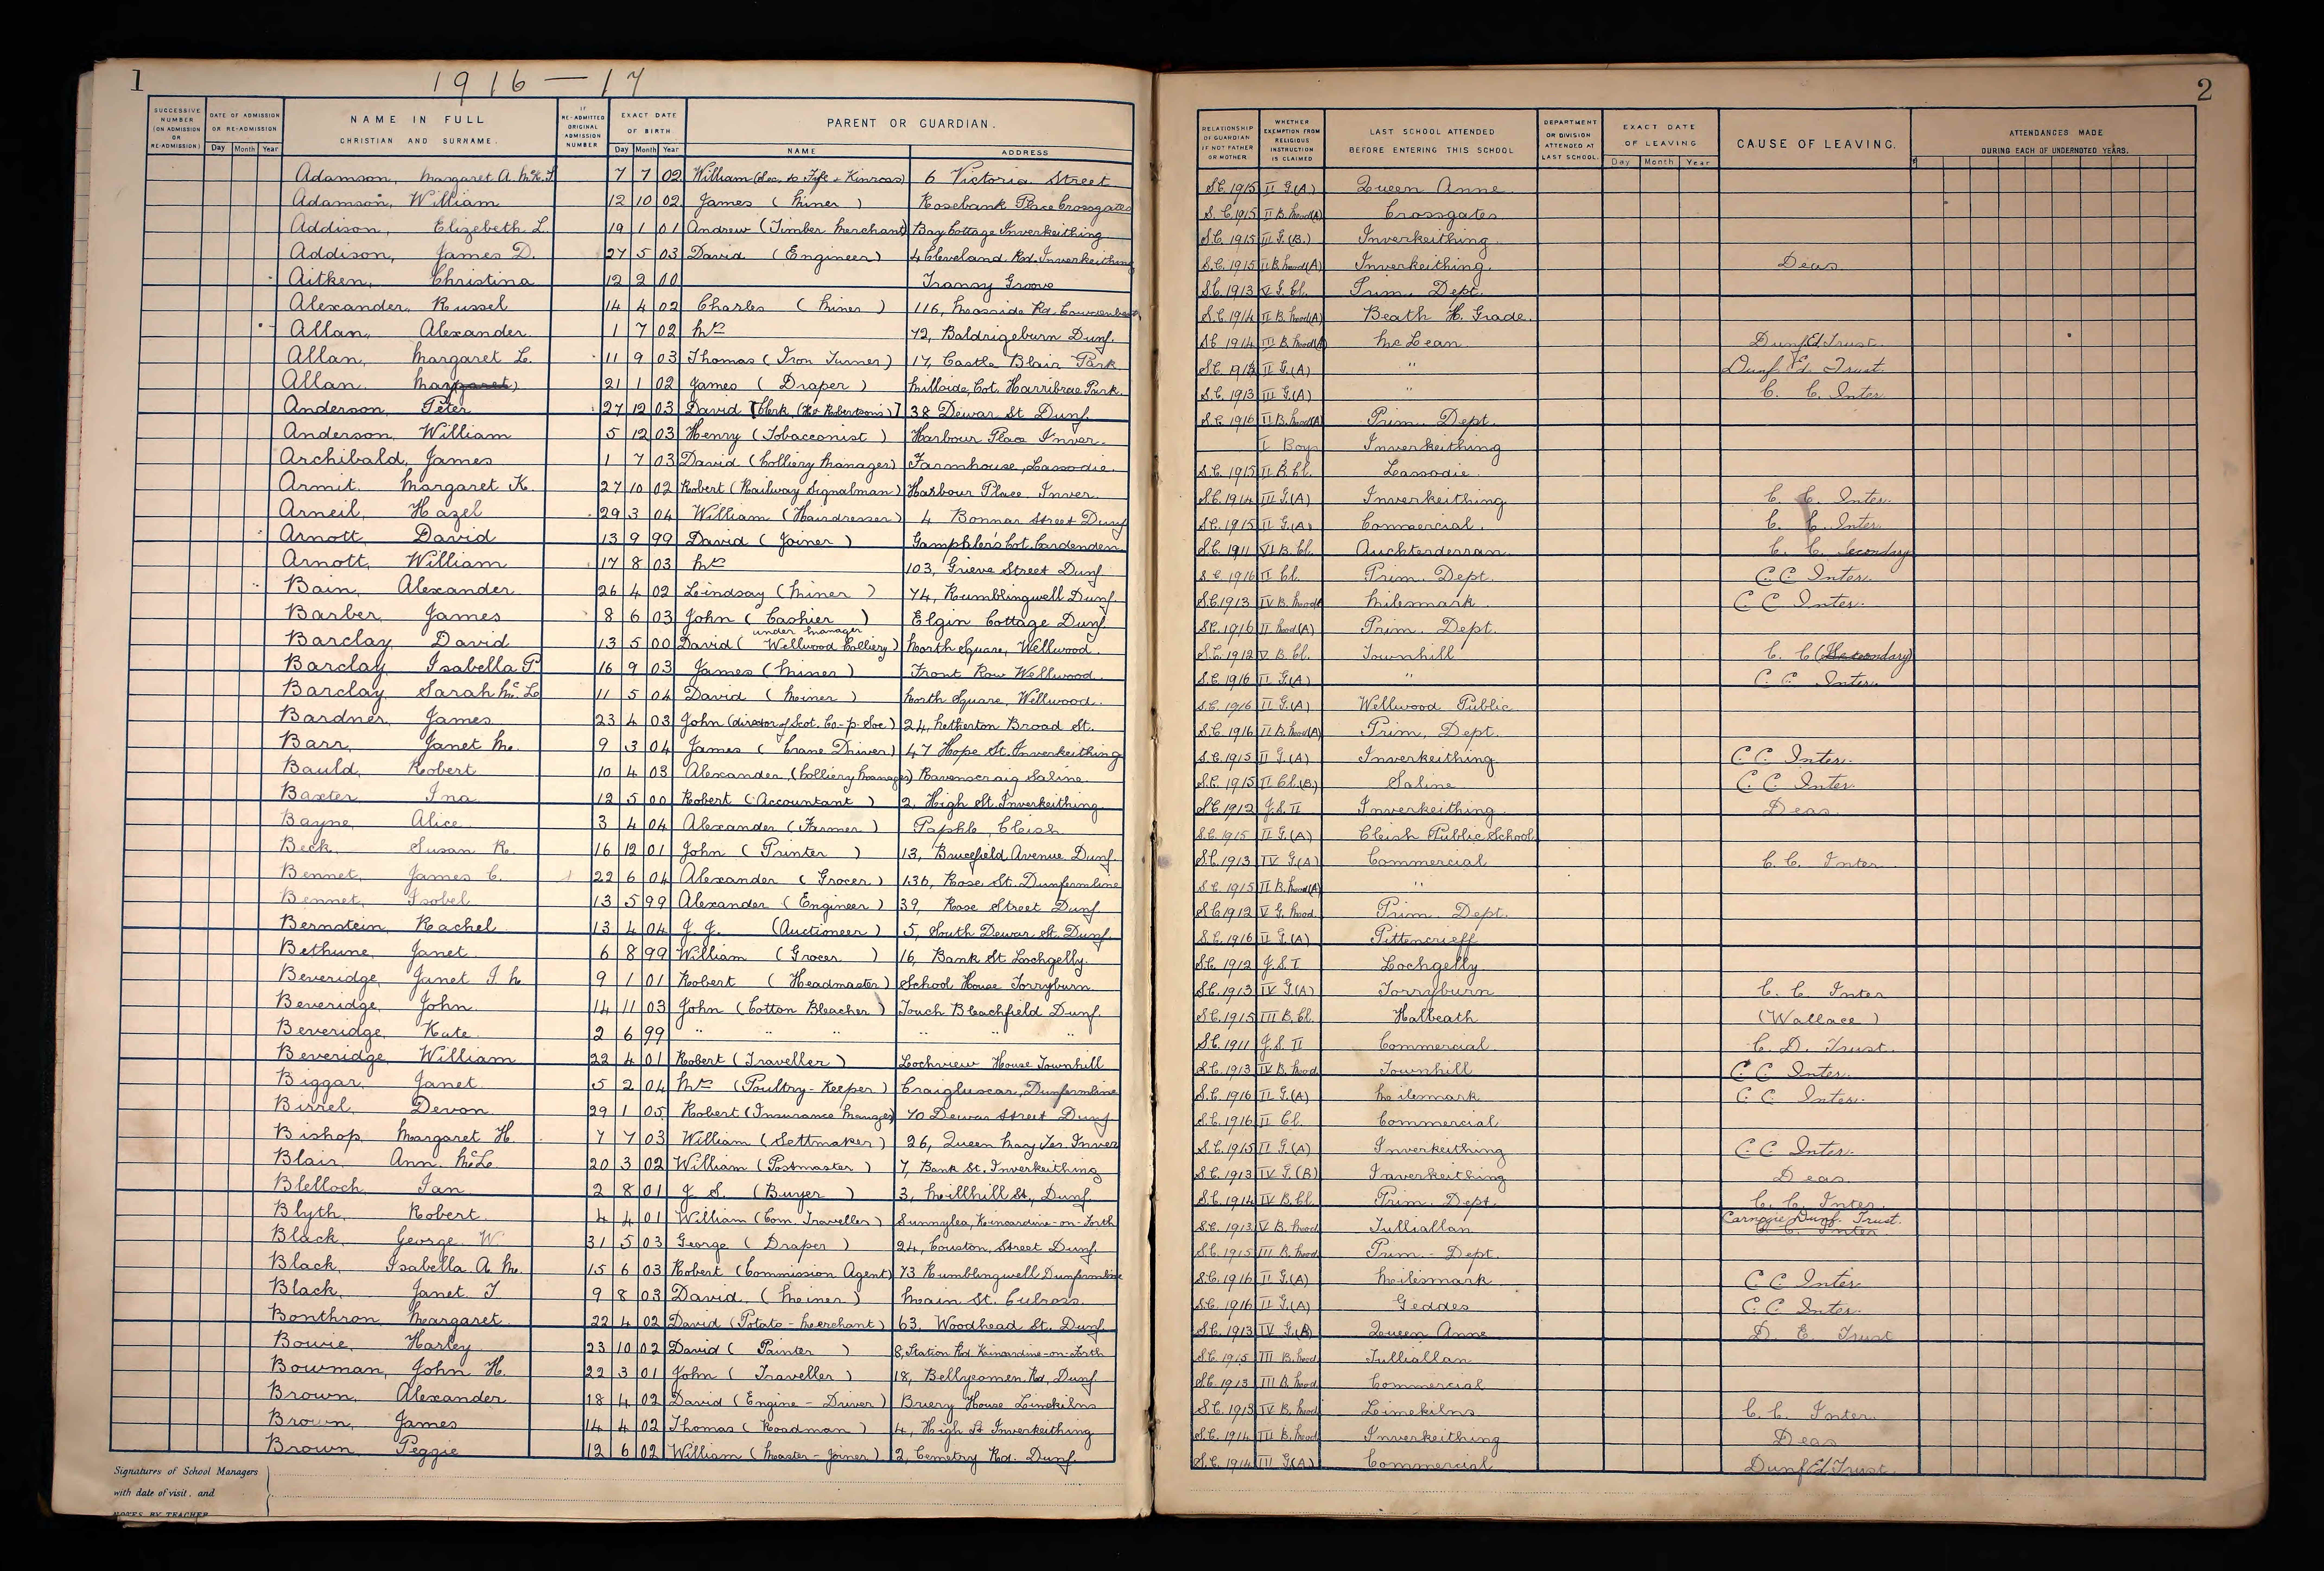 1
1916 — 17
SUCCESSIVE NUMBER (ON ADMISSION OR RE-ADMISSION) DATE OF ADMISSION OR RE-ADMISSION Day Month Year NAME IN FULL CHRISTIAN AND SURNAME. IF RE-ADMITTED ORIGINAL ADMISSION NUMBER EXACT DATE OF BIRTH Day Month Year PARENT OR GUARDIAN. NAME ADDRESS
Adamson, Margaret A. McK. 7 7 02 William (Sec. to Fife & Kinross) 6 Victoria Street
Adamson, William 12 10 02 James (Miner) Rosebank Place Crossgates
Addison, Elizebeth L. 19 1 01 Andrew (Timber Merchant) Bay Cottage Inverkeithing
Addison, James D. 27 5 03 David (Engineer) 4 Cleveland Rd. Inverkeithing
Aitken, Christina 12 2 00 Transy Grove
Alexander, Russel 14 4 02 Charles (Miner) 116, Mosside Rd. Cowdenbeath
Allan, Alexander 1 7 02 Mrs 72, Baldrigeburn Dunf.
Allan, Margaret L. 11 9 03 Thomas (Iron Turner) 17, Castle Blair Park
Allan, Margaret 21 1 02 James (Draper) Hillside Cot. Harribrae Park.
Anderson, Peter 27 12 03 David [Clerk, (Hay Robertson's)] 38 Dewar St Dunf.
Anderson, William 5 12 03 Henry (Tobacconist) Harbour Place Inver.
Archibald, James 1 7 03 David (Colliery Manager) Farmhouse, Lassodie.
Armit, Margaret K. 27 10 02 Robert (Railway Signalman) Harbour Place Inver.
Arneil, Hazel 29 3 04 William (Hairdresser) 4 Bonnar Street Dunf
Arnott, David 13 9 99 David (Joiner) Cot. Cardenden
Arnott, William 17 8 03 Mrs 103, Grieve Street Dunf
Bain, Alexander 26 4 02 Lindsay (Miner) 74, Rumblingwell Dunf
Barber, James 8 6 03 John (Cashier) Elgin Cottage Dunf
Barclay, David 13 5 00 David (under Manager Wellwood Colliery) North Square, Wellwood.
Barclay, Isabella P. 16 9 03 James (Miner) Front Row Wellwood.
Barclay, Sarah Mc.L 11 5 04 David (Miner) North Square, Wellwood.
Bardner, James 23 4 03 John (director of Scot. Co-p. Soc) 24, Netherton Broad St.
Barr, Janet M. 9 3 04 James (Crane Driver) 47 Hope St. Inverkeithing
Bauld, Robert 10 4 03 Alexander, (Colliery Manager) Ravenscraig Saline.
Baxter, Ina 12 5 00 Robert (Accountant) 2, High St. Inverkeithing.
Bayne, Alice 3 4 04 Alexander (Farmer) Paphle, Cleish
Beck, Susan R. 16 12 01 John (Printer) 13, Brucefield Avenue Dunf.
Bennet, James C. 22 6 04 Alexander (Grocer) 136, Rose St. Dunfermline
Bennet, Isobel 13 5 99 Alexander (Engineer) 39, Rose Street Dunf.
Bernstein, Rachel 13 4 04 J. J. (Auctioneer) 5, South Dewar St. Dunf.
Bethune, Janet 6 8 99 William (Grocer) 16, Bank St Lochgelly.
Beveridge, Janet I. M. 9 1 01 Robert (Headmaster) School House Torryburn.
Beveridge, John 14 11 03 John (Cotton Bleacher) Touch Bleachfield Dunf.
Beveridge, Kate 2 6 99 " " " " " "
Beveridge, William 22 4 01 Robert (Traveller) Lochview House Townhill
Biggar, Janet 5 2 04 Mrs (Poultry-Keeper) Craigluscar, Dunfermline
Birrel, Devon 29 1 05 Robert (Insurance Manager) 70 Dewar Street Dunf
Bishop, Margaret H. 7 7 03 William (Settmaker) 26, Queen Mary Ter. Inver
Blair, Ann McL. 20 3 02 William (Postmaster) 7, Bank St. Inverkeithing
Blelloch, Ian 2 8 01 J. S. (Buyer) 3, Millhill St., Dunf.
Blyth, Robert 4 4 01 William (Com. Traveller) Sunnylea, Kincardine-on-Forth
Black, George W. 31 5 03 George (Draper) 24, Couston, Street Dunf.
Black, Isabella A. M. 15 6 03 Robert (Commission Agent) 73 Rumblingwell Dunfermline
Black, Janet T 9 8 03 David (Miner) Main St. Culross.
Bonthron, Margaret 22 4 02 David (Potato-Merchant) 63, Woodhead St. Dunf.
Bowie, Harley 23 10 02 David (Painter) 8, Station Rd. Kincardine-on-Forth
Bowman, John H. 22 3 01 John (Traveller) 18, Bellyeomen Rd, Dunf.
Brown, Alexander 18 4 02 David (Engine-Driver) Briery House Limekilns
Brown, James 14 4 02 Thomas (Roadman) 4, High St Inverkeithing
Brown, Peggie 12 6 02 William (Master-Joiner) 2, Cemetry Rd. Dunf.
Signatures of School Managers
with date of visit, and
NOTES BY TEACHER
2
RELATIONSHIP OF GUARDIAN IF NOT FATHER OR MOTHER WHETHER EXEMPTION FROM RELIGIOUS INSTRUCTION IS CLAIMED LAST SCHOOL ATTENDED BEFORE ENTERING THIS SCHOOL DEPARTMENT OR DIVISION ATTENDED AT LAST SCHOOL. EXACT DATE OF LEAVING Day Month Year CAUSE OF LEAVING. ATTENDANCES MADE DURING EACH OF UNDERNOTED YEARS.
S.C. 1915 II G.(A) Queen Anne
S.C. 1915 II B. Mod(A) Crossgates
S.C. 1915 III G.(B.) Inverkeithing
S.C. 1915 II B. Mod(A) Inverkeithing. Deas
S.C. 1913 V G. Cl. Prim. Dept.
S.C. 1914 II B. Mod(A) Beath H. Grade.
S.C. 1914 III B. Mod McLean Dunf Ed Trust.
II G.(A) " Dunf Ed. Trust.
S.C. 1913 III G.(A) " C. C. Inter
S.C. 1916 II B. Mod(A) Prim. Dept.
I Boys Inverkeithing
S.C. 1915 II B. Cl. Lassodie
S.C. 1914 III G.(A) Inverkeithing C. C. Inter.
S.C. 1915 II G.(A) Commercial. C. C. Inter
S.C. 1911 VI B. Cl. Auchterderran C. C. Secondary
S.C. 1916 II Cl. Prim. Dept. C.C. Inter.
S.C. 1913 IV B. Mod Milesmark C C Inter.
S.C. 1916 II Mod(A) Prim. Dept.
S.C. 1912 V B. Cl. Townhill C. C (Secondary)
S.C. 1916 II G.(A) " C C Inter.
S.C. 1916 II G.(A) Wellwood Public
S.C. 1916 II B. Mod(A) Prim. Dept.
S.C. 1915 II G.(A) Inverkeithing C C Inter.
S.C. 1915 II Cl.(B) Saline C C Inter.
S.C. 1912 J.S. II Inverkeithing Deas
S.C. 1915 II G.(A) Cleish Public School
S.C. 1913 IV G.(A) Commercial C.C. Inter
S.C. 1915 II B. Mod(A) "
S.C. 1912 V G. Mod. Prim. Dept.
S.C. 1916 II G.(A) Pittencrieff
S.C. 1912 J.S. I Lochgelly
S.C. 1913 IV G.(A) Torryburn C. C. Inter
S.C. 1915 III B. Cl. Halbeath (Wallace)
S.C. 1911 J.S. II Commercial C. D. Trust.
S.C. 1913 IV B. Mod Townhill C C Inter.
S.C. 1916 II G.(A) Milesmark C C Inter.
S.C. 1916 II Cl. Commercial
S.C. 1915 II G.(A) Inverkeithing C C Inter.
S.C. 1913 IV G.(B) Inverkeithing Deas.
S.C. 1914 IV B. Cl. Prim. Dept. C. C. Inter.
S.C. 1913 V B. Mod Tulliallan Carnegie Dunf. Trust. C. C. Inter
S.C. 1915 III B. Mod Prim. Dept.
S.C. 1916 II G.(A) Milesmark C C Inter
S.C. 1916 II G.(A) Geddes C C Inter.
S.C. 1913 IV G.(B) Queen Anne D. E Trust
S.C. 1915 III B. Mod Tulliallan
S.C. 1913 III B. Mod Commercial
S.C. 1913 IV B. Mod Limekilns C. C. Inter.
S.C. 1914 III B. Mod Inverkeithing Deas
S.C. 1914 III G.(A) Commercial Dunf Ed Trust.